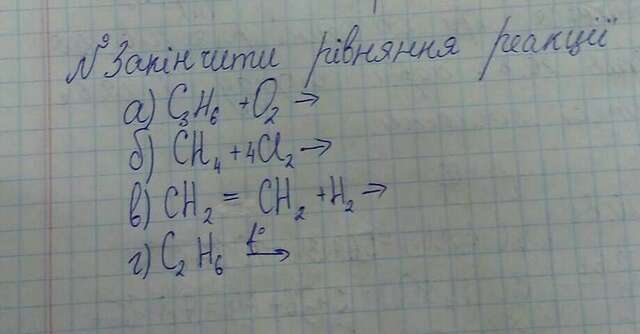 № Закінчити рівняння реакції
а) C₃H₆ + O₂ →
б) CH₄ + 4Cl₂ →
в) CH₂ = CH₂ + H₂ →
г) C₂H₆ t° →